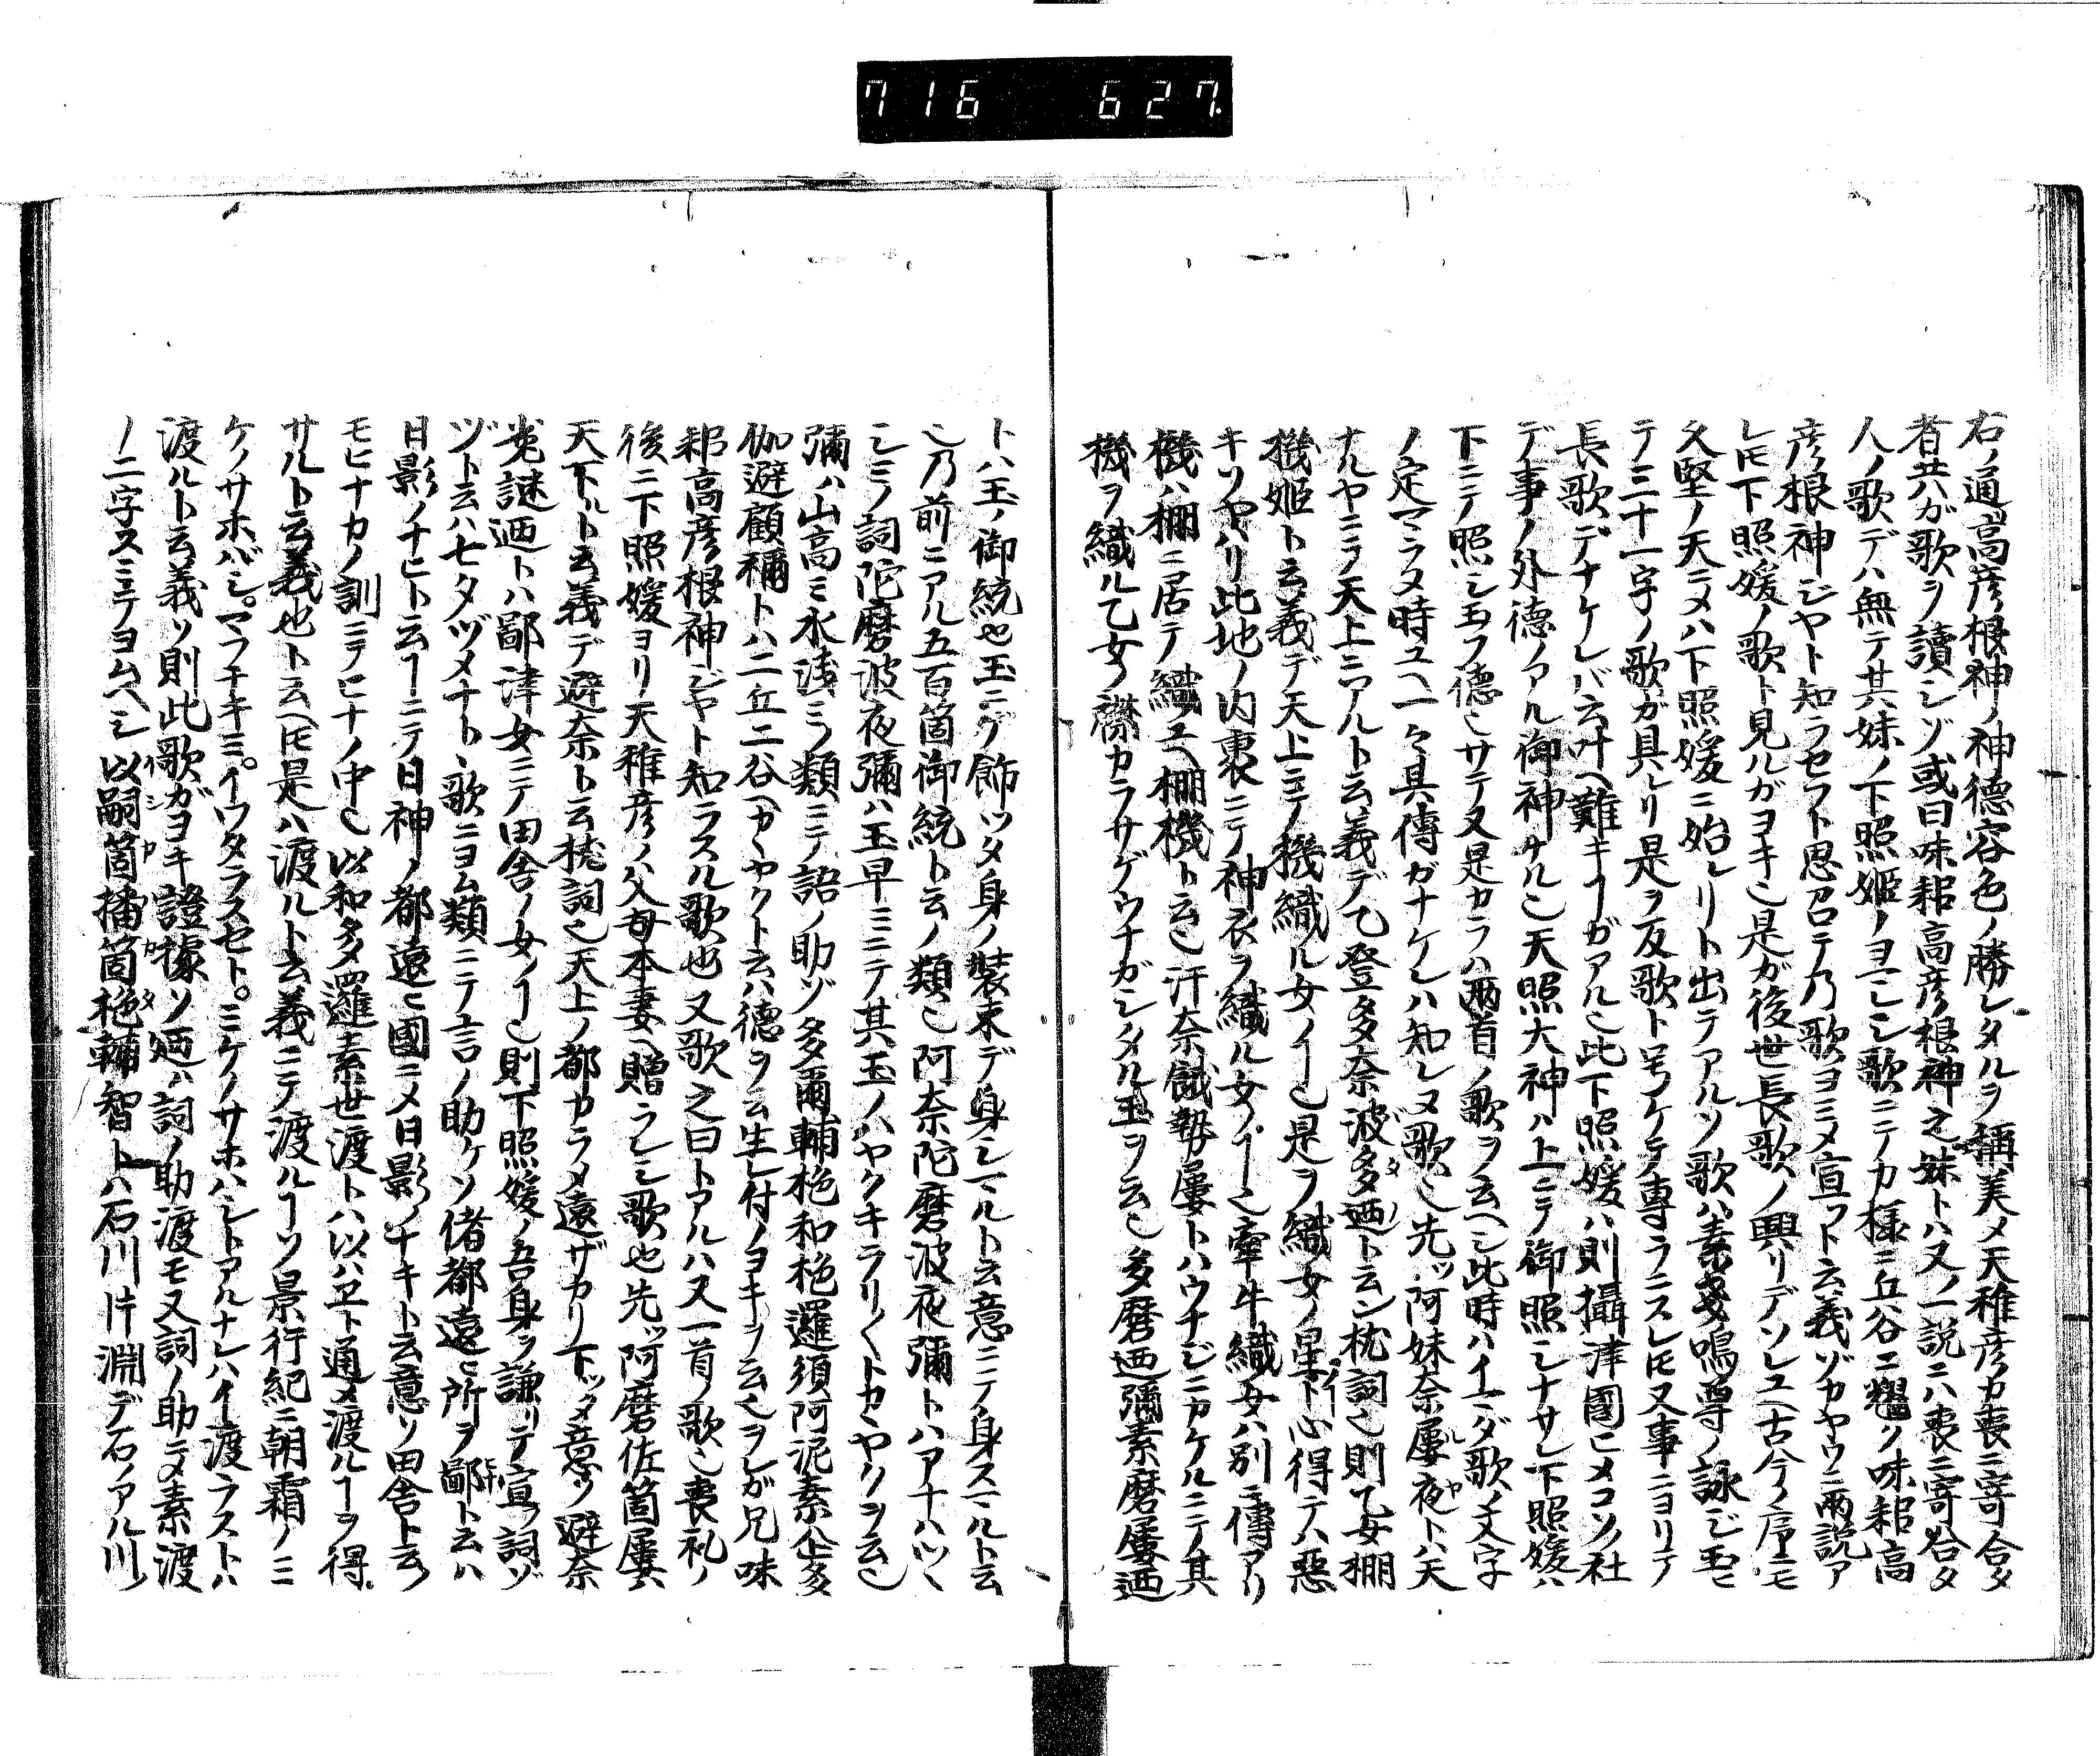 716 627
右ノ通高彦根神ノ神徳容色ノ勝レタルヲ稱美メ天稚彦カ喪ニ寄合タ
者共ガ歌ヲ讀シゾ或曰味耜高彦根神之妹トハ又ノ一説ニハ喪ニ寄合タ
人ノ歌デハ無テ其妹ノ下照姫ノヨマレシ歌ニテカ様ニ丘谷ニ耀ク味耜高
彦根神ジヤト知ラセウト思召テ乃歌ヨミメ宣フト云義ゾカヤウニ兩説ア
レ𪜈下照媛ノ歌ト見ルガヨキ也是ガ後世長歌ノ興リデソレユヘ古今ノ序ニモ
久堅ノ天ニメハ下照媛ニ始レリト出テアルソ歌ハ素戔嗚尊ノ詠ジ玉ヒ
テ三十一字ノ歌ガ具レリ是ヲ反歌ト号ケテ專ラニスレ𪜈又事ニヨリテ
長歌デナケレバ云叶ヘ難キヿガアル也此下照媛ハ則攝津國ヒメコソノ社
デ事ノ外徳ノアル御神ナル也天照大神ハ上ニテ御照シナサレ下照媛ハ
下ニテ照シ玉フ徳也サテ又是カラハ兩首ノ歌ヲ云ヘシ此時ハイマダ歌ノ文字
ノ定マラヌ時ユヘ一々具傳ガナケレハ知レヌ歌也先ッ阿妹奈屢夜トハ天
ナルヤニテ天上ニアルト云義デ乙登多奈波多廼ト云ン枕詞也則乙女棚
機姫ト云義デ天上ニテ機織ル女ノヿ也是ヲ織女ノ星ノヿト心得テハ惡
キソヤハリ此地ノ内裏ニテ神衣ヲ織ル女ノヿ也牽牛織女ハ別ニ傳アリ
機ハ棚ニ居テ織ユヘ棚機ト云也汙奈餓勢屢トハウナジニカケルニテ其
機ヲ織ル乙女ノ襟カラサゲウナガシタル玉ヲ云也多磨廼彌素磨屢廼
トハ玉ノ御統也玉ニテ飾ツタ身ノ裝束デ身シマルト云意ニテ身スマルト云
也乃前ニアル五百箇御統ト云ノ類也阿奈陀磨波夜彌トハアナハツヽ
シミノ詞陀磨波夜彌ハ玉早ミニテ其玉ノハヤクキラリ〱トカヽヤクヲ云也
彌ハ山高ミ水淺ミノ類ニテ語ノ助ゾ多爾輔柂和柂邏須阿泥素企多
伽避顧禰トハ二丘二谷ヘカヽヤクト云ハ徳ヲ云生レ付ノヨキヲ云也ヲレガ兄味
耜高彦根神ジヤト知ラスル歌也又歌之曰トアルハ又一首ノ歌也喪礼ノ
後ニ下照媛ヨリ天稚彦ノ父母本妻ヘ贈ラレシ歌也先ッ阿磨佐箇屢ハ
天下ルト云義デ避奈ト云枕詞也天上ノ都カラメ遠ザカリ下ッタ意ゾ避奈
菟謎廼トハ鄙津女ニテ田舎ノ女ノヿ也則下照媛ノ吾身ヲ謙リテ宣フ詞ゾ
ヅト云ハ七夕ヅメナト歌ニヨム類ニテ言ノ助ケソ偖都遠ヒ所ヲ鄙ト云ハ
日影ノナヒト云ヿニテ日神ノ都遠ヒ國ニメ日影ノナキト云意ソ田舎ト云フ
モヒナカノ訓ニテヒナノ中也以和多邏素世渡トハ以ハヱト通メ渡ルヿヲ得
サルト云義也ト云ヘ𪜈是ハ渡ルト云義ニテ渡ルヿソ景行紀ニ朝霜ノミ
ケノサホバシ。マフチキミ。イワタラスセト。ミケノサホハシトアルナレハイ渡ラストハ
渡ルト云義ソ則此歌ガヨキ證據ソ廼ハ詞ノ助渡モ又詞ノ助ニメ素渡
ノ二字スミテヨムヘシ以嗣箇播箇柂輔智トハ石川片淵デ石ノアル川ノ